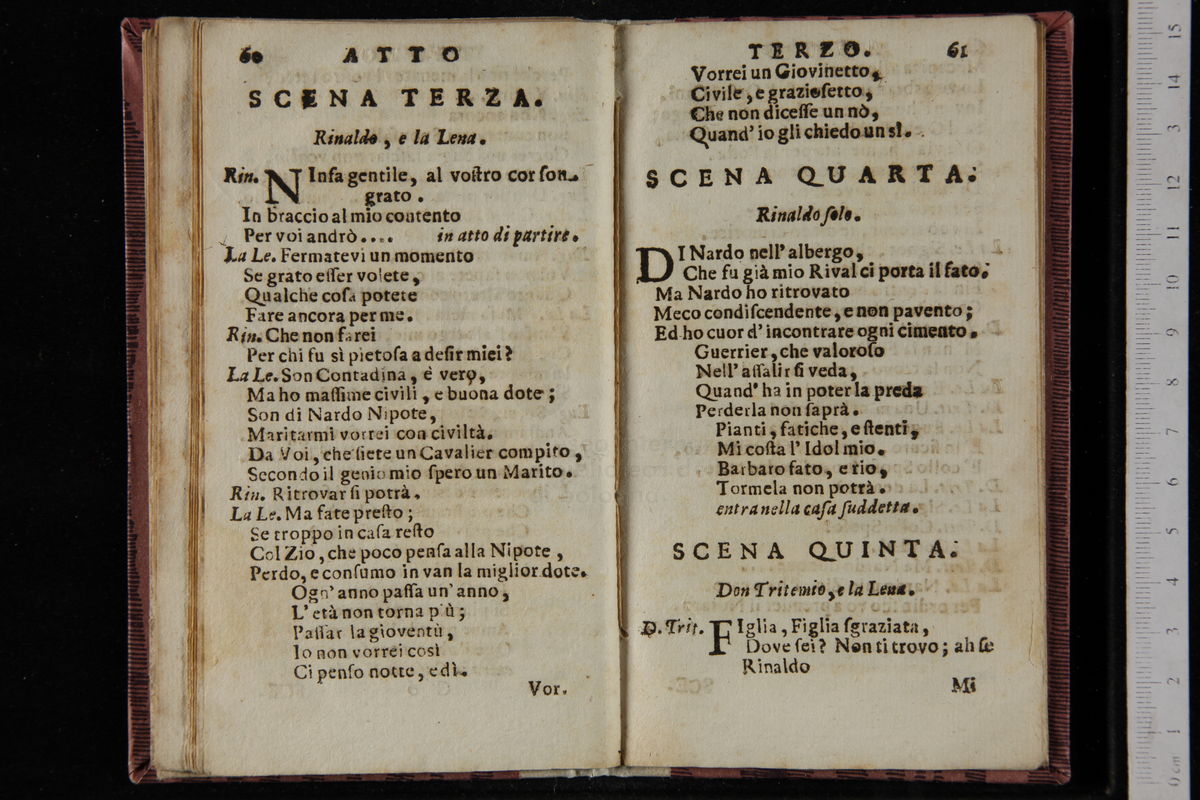 60 ATTO
SCENA TERZA.
Rinaldo, e la Lena.
Rin. NInfa gentile, al voſtro cor ſon
grato.
In braccio al mio contento
Per voi andrò.... in atto di partire.
La Le. Fermatevi un momento
Se grato eſſer volete,
Qualche coſa potete
Fare ancora per me.
Rin. Che non farei
Per chi fu sì pietoſa a deſir miei?
La Le. Son Contadina, è vero,
Ma ho maſſime civili, e buona dote;
Son di Nardo Nipote,
Maritarmi vorrei con civiltà.
Da Voi, che ſiete un Cavalier compito,
Secondo il genio mio ſpero un Marito.
Rin. Ritrovar ſi potrà.
La Le. Ma fate preſto;
Se troppo in caſa reſto
Col Zio, che poco penſa alla Nipote,
Perdo, e conſumo in van la miglior dote.
Ogn' anno paſſa un' anno,
L' età non torna più;
Paſſar la gioventù,
Io non vorrei così
Ci penſo notte, e dì.
Vor.
TERZO. 61
Vorrei un Giovinetto,
Civile, e grazioſetto,
Che non diceſſe un nò,
Quand' io gli chiedo un sì.
SCENA QUARTA.
Rinaldo ſolo.
DI Nardo nell' albergo,
Che fu già mio Rival ci porta il fato.
Ma Nardo ho ritrovato
Meco condiſcendente, e non pavento;
Ed ho cuor d' incontrare ogni cimento.
Guerrier, che valoroſo
Nell' aſſalir ſi veda,
Quand' ha in poter la preda
Perderla non ſaprà.
Pianti, fatiche, e ſtenti,
Mi coſta l' Idol mio.
Barbaro fato, e rio,
Tormela non potrà.
entra nella caſa ſuddetta.
SCENA QUINTA.
Don Tritemio, e la Lena.
D. Trit. FIglia, Figlia ſgraziata,
Dove ſei? Non ti trovo; ah ſe
Rinaldo
Mi